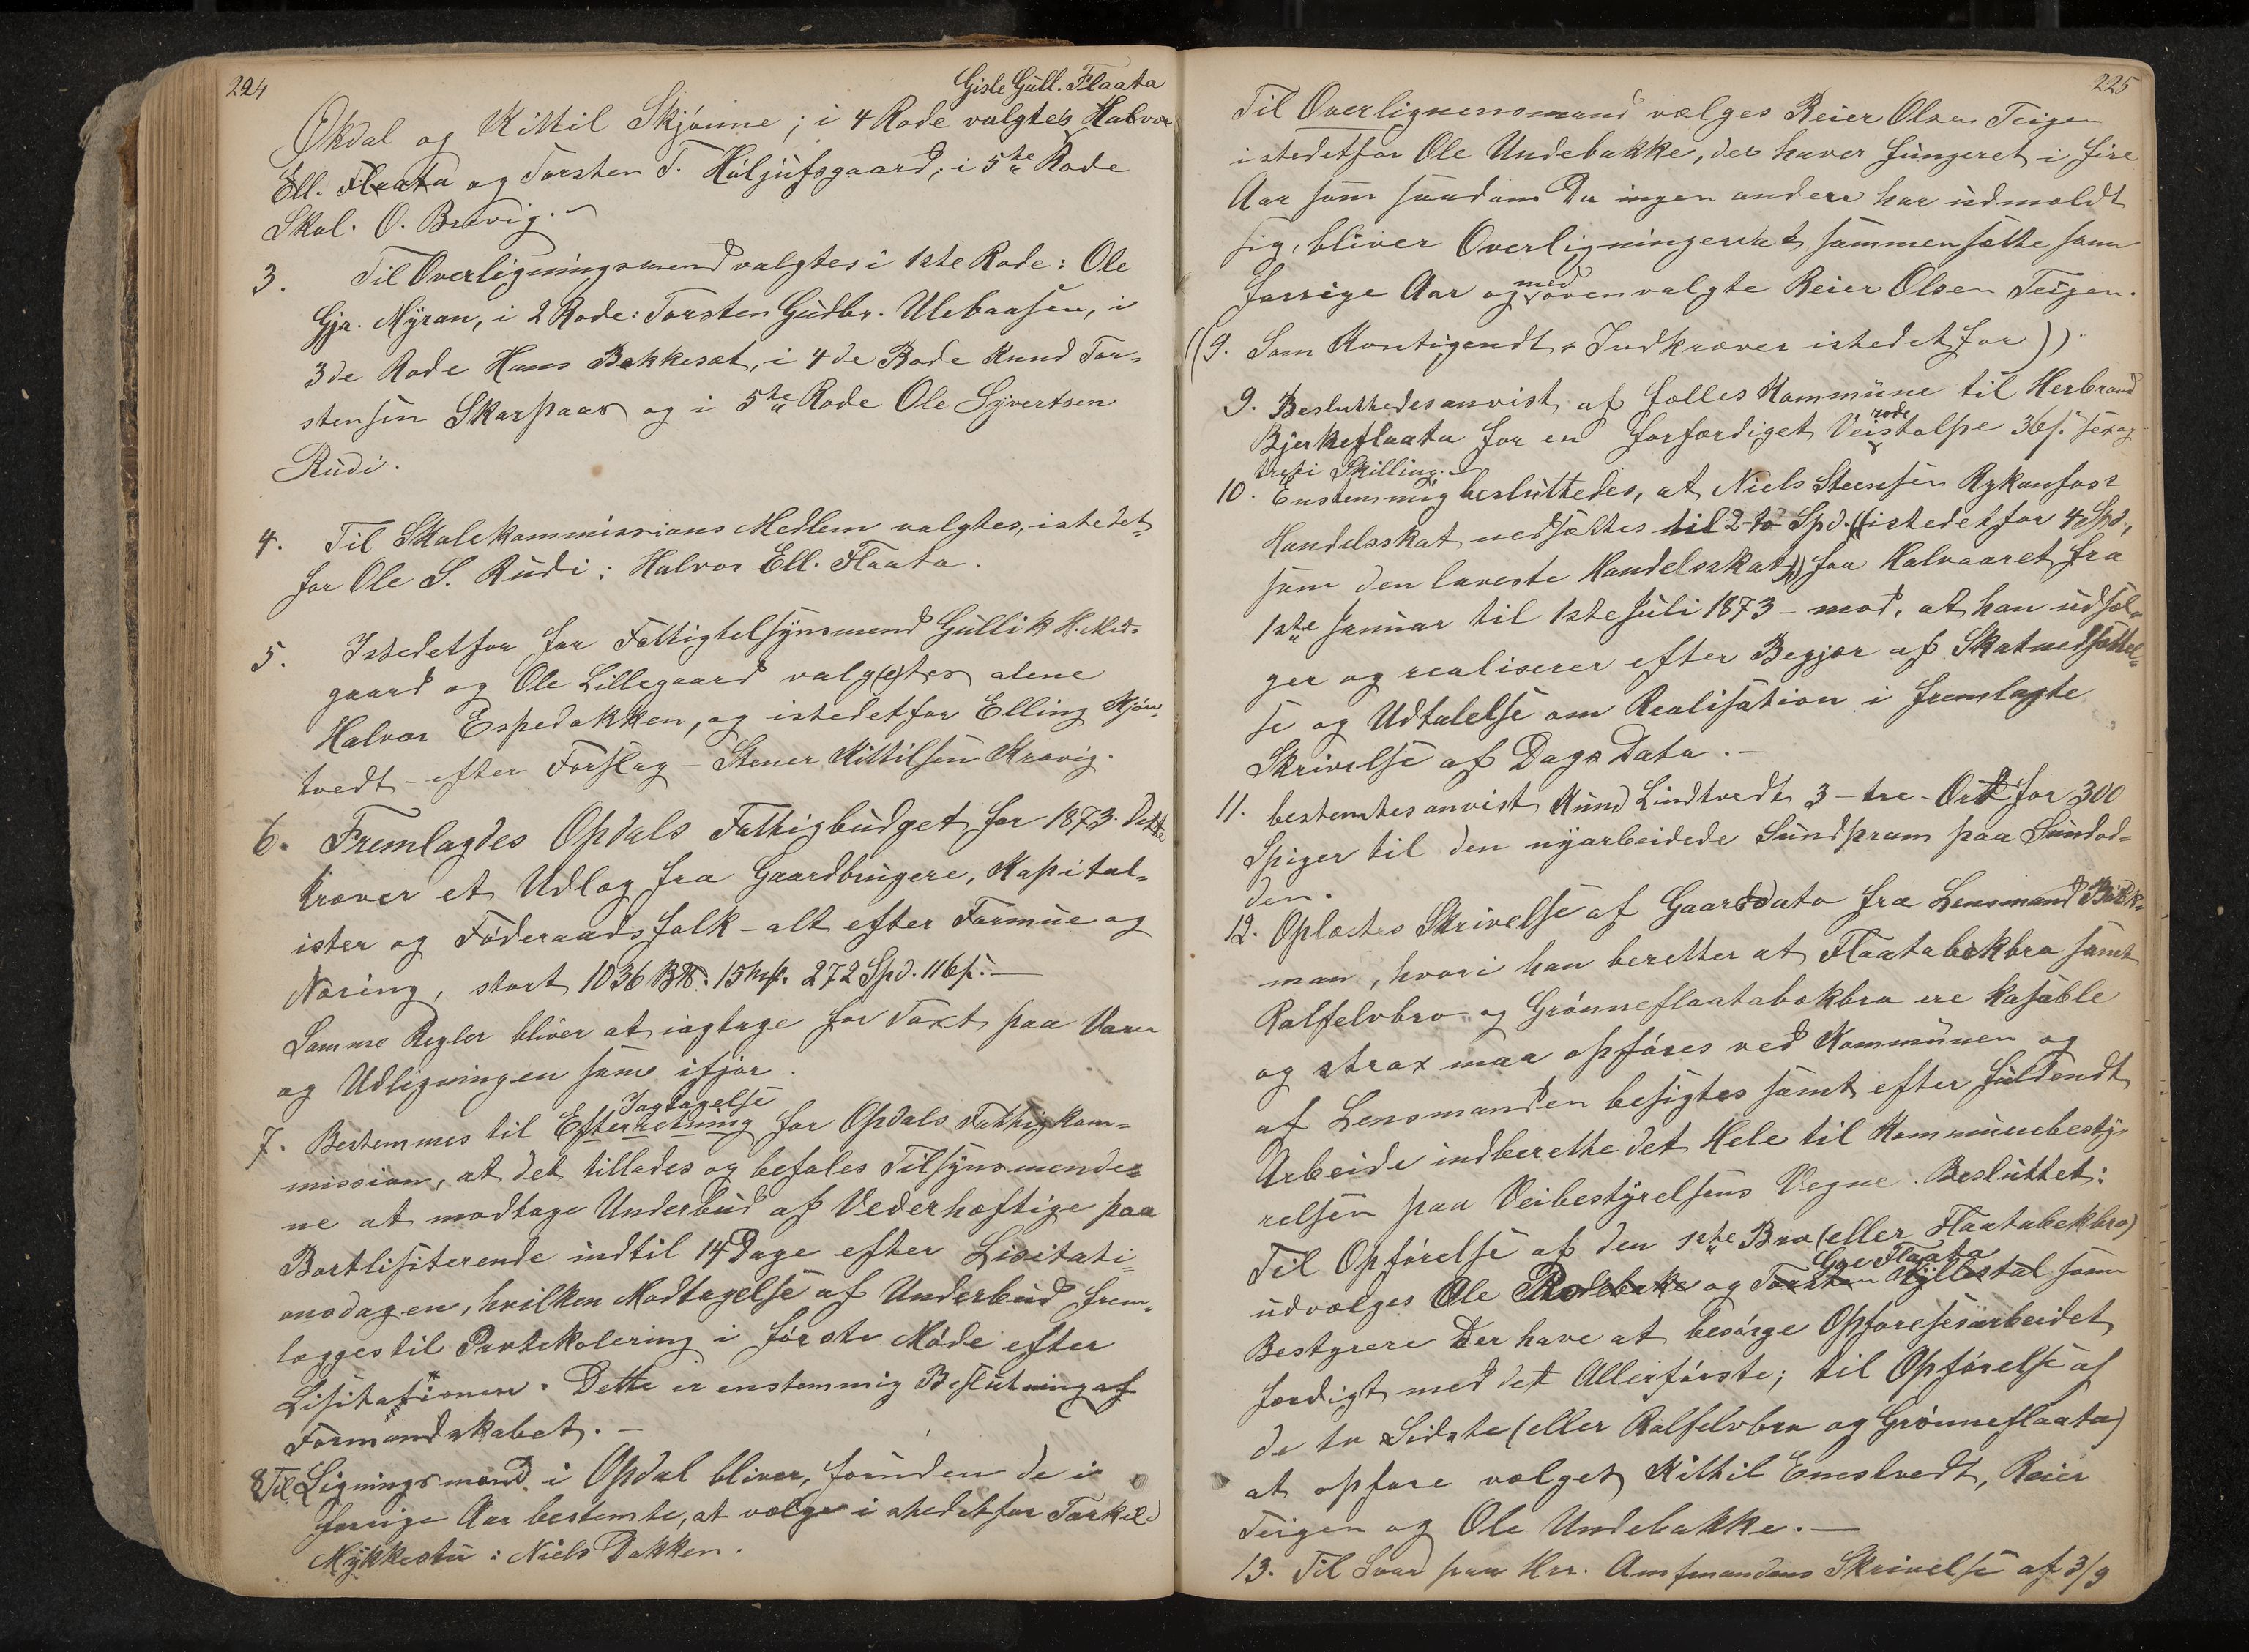 224
Gisle Gull. Flaata
Økdal og Kittil Skjønne; i 4 Rode valgtes Halvor
Ell. Flaata og Torsten T. Høljufsgaard; i 5te Rode
Skol. O. Bravig. –
3. Til Overligningsmend valgtes i 1ste Rode: Ole
Gjr. Myran, i 2 Rode: Torsten Gudbr. Ulebaasen, i
3de Rode Hans Bakkesæt, i 4de Rode Knud Tor=
stensen Skarpaas og i 5te Rode Ole Syvertsen
Rudi.
4. Til Skolekommissions Medlem valgtes, istedet=
for Ole S. Rudi: Halvor Ell. Flaata.
5. Istedetfor for Fattigtelsynsmend Gullik H. Mid=
gaard og Ole Lillegaard valg(e)tes alene
Halvor Espedokken, og istedetfor Elling Kjøn=
tvedt – efter Forslag – Stener Kittilsen Kravig.
6. Fremlagdes Opdals Fattigbudget for 1873. Dette
kræver et Udlæg fra Gaardbrugere, Kapital=
ister og Føderaadsfolk – alt efter Formue og
Næring, stort 1036 B℔. 15 mk. 272 Spd. 116 s. –
Samme Regler bliver at iagtage for Taxt paa Varer
og Udligningen some ifjor.
Iagtagelse
7. Bestemmes til Efterretning for Opdals Fattigkom=
mission, at det tillades og befales Tilsynsmende=
ne at modtage Underbud af Vederhæftige paa
Bortlisiterende indtil 14 Dage efter Lisitati=
onsdagen, hvilken Modtagelse af Underbud frem=
lægges til Protokolering i første Møde efter
Lisitationen. Dette er enstemmig Beslutning af
Formandskabet. –
8 Til Ligningsmænd i Opdal bliver, foruden de i
forrige Aar bestemte, at vælge i stedetfor Torkild
Mykkestu: Niels Dokken.
225
Til Overlignensmand vælges Reier Olsen Teigen
i stedetfor Ole Undebakke, der haver fungeret i fire
Aar som saadan Da ingen andere har udmeldt
sig, bliver Overligningen sammensatte som
forrige Aar og med ovenvalgte Reier Olsen Teigen.
((9. Som Kontigendt = Indkræver istedetfor))
9. Besluttedes anvist af fælles Kommune til Herbrand
Bjerkeflaata for en forfærdiget Veirodestolpe 36 s. sexog
treti Skilling. –
10. Enstemmig besluttedes, at Niels Steensen Rykanfos's
Handelsskat nedsættes til 2-to Spd. ((istedetfor 4 Spd.,
som den laveste Handelsskat)) for Halvaaret fra
1ste Januar til 1ste Juli 1873 – mod, at han udsæl=
ger og realiserer efter Begjær af Skatnedsættel=
se og Udtalelse om Realisation i fremlagte
Skrivelse af Dags Dato. –
11. bestemtes anvist Knud Lindtvedt 3 – tre – Ort for 300
Spiger til den nyarbeidede Sundpram paa Sundod=
den.
12. Oplæstes Skrivelse af Gaarsdato fra Lensmand Bæk=
man, hvori han beretter at Flaatabekbro samt
Ralfelvbro og Grønneflaatabækbro ere kasable
og strax maa opføres ved Kommunen og
af Lensmanden besigtes samt efter fuldendt
Arbeide indberette det Hele til Kommunebesty=
relsen paa Veibestyrelsens Vegne. Besluttet:
Til Opførelse af den 1ste Bro (eller Flaatabekbro)
Flaata
udvælges Ole Rodebakke og Torsten Hyllestal som
Bestyrere Der have at besørge Opføresesarbeidet
færdigt med det Allerførste; til Opførelse af
de to Sidste (eller Ralfelvbro og Grønneflaata)
at opføre vælges Kittil Enestvedt, Reier
Teigen og Ole Undebakke. –
13. Til Svar paa Hrr. Amtmandens Skrivelse af 3/9